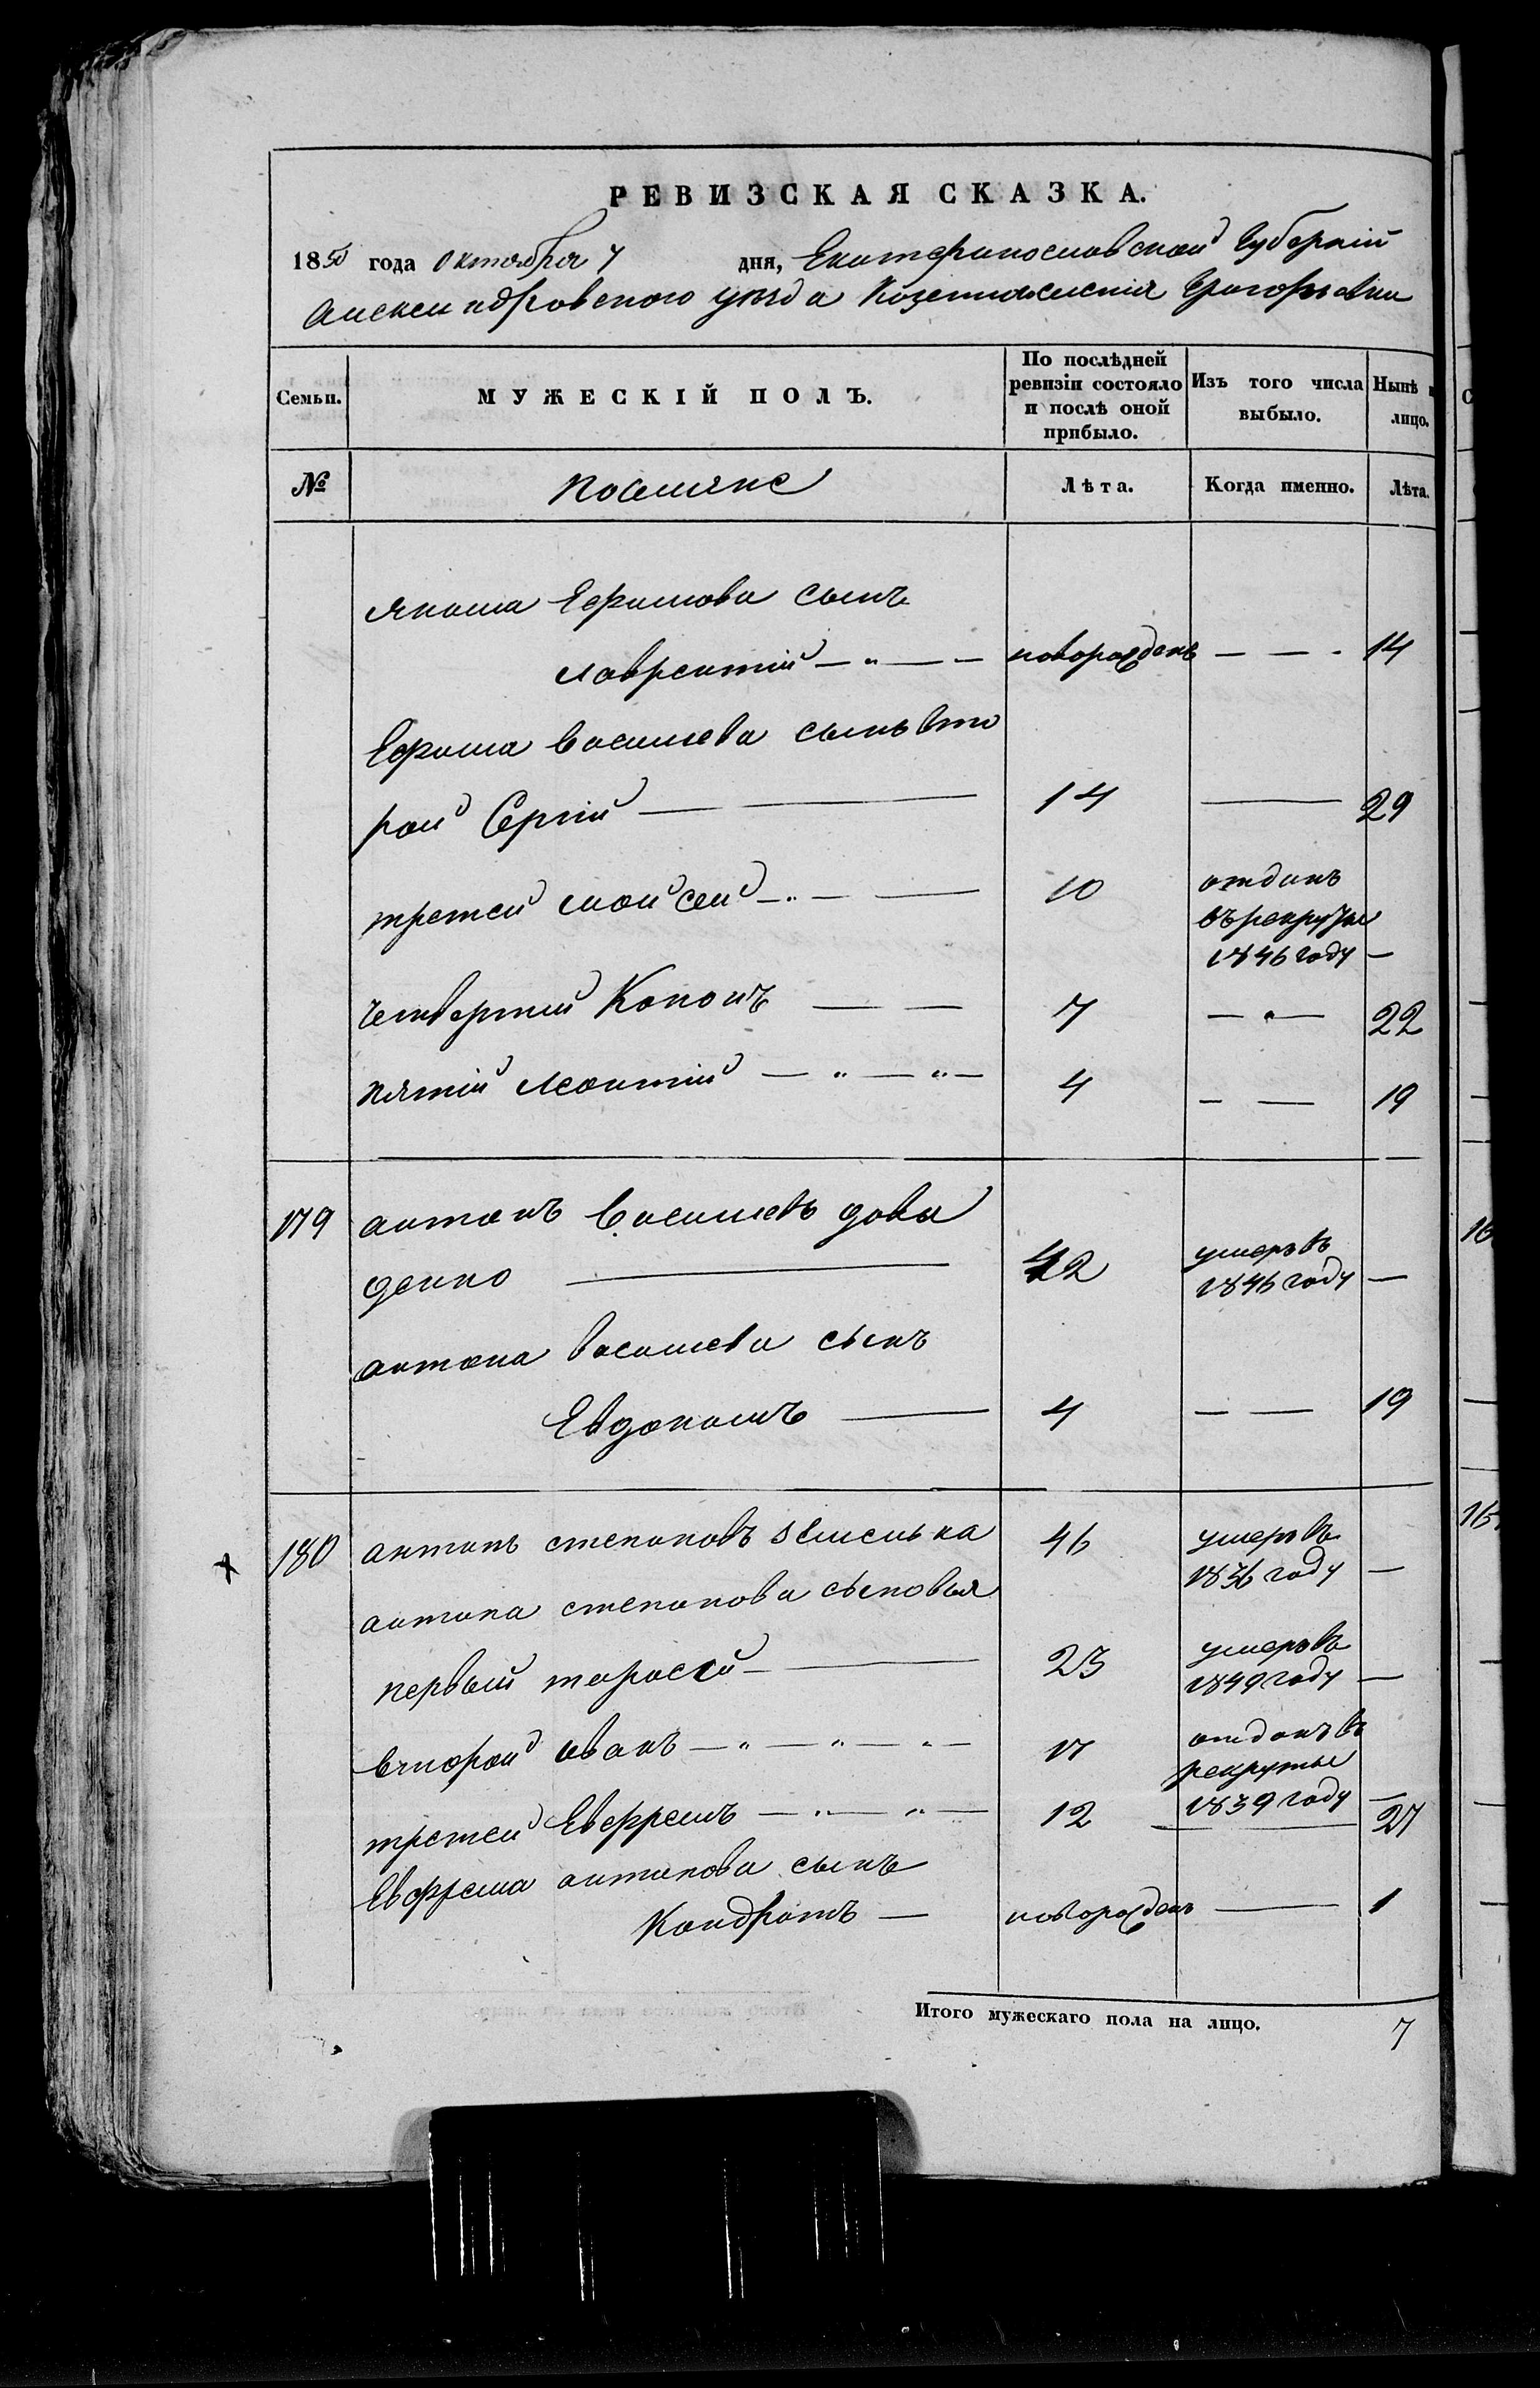 РЕВИЗСКАЯ СКАЗКА.
1850 года Октября 7 дня, Екатеринославской Губерніи
Александровского уѣзда Григорьевки
Семьи. МУЖЕСКІЙ ПОЛЪ. По послѣдней ревизіи состояло и послѣ оной прибыло. Изъ того числа выбыло. Нынѣ лицо.
№ Поселяне Лѣта. Когда именно. Лѣта.
Якима Ефимова сынъ
Лаврентій новорожденъ 14
Ефима Васильева сынъ вто
рой Сергій 14 29
третей Мойсей 10 отданъ
въ рекруты
1846 году
четвертий Кононъ 7 22
пятій Леонтій 4 19
179 Антонъ Васильевъ Давы
денко 42 умеръ въ
1846 году
Антона Васильева сынъ
Евдокимъ 4 19
180 Антонъ Степановъ 46 умеръ въ
1836 году
Антона Степанова сыновья
первый Тарасий 23 умеръ въ
1849 году
второй Иванъ 17 отданъ въ
рекруты
1839 году
третей Евфремъ 12 27
Евфрема Антонова сынъ
Кондратъ новорожденъ 1
Итого мужескаго пола на лицо. 7